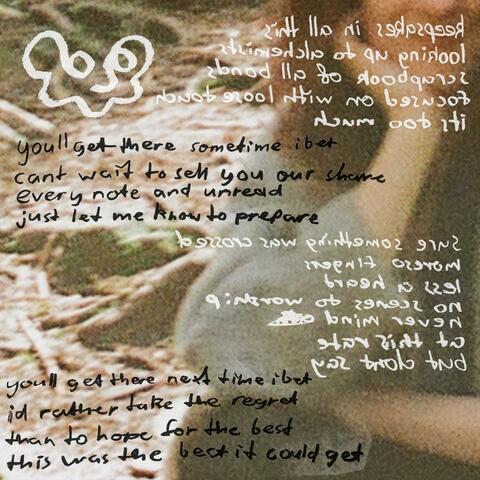 keepsakes in all this
looking up to alchemists
scrapbook of all bonds
focused on with loose touch
its too much
youll get there sometime i bet
cant wait to sell you our shame
every note and unread
just let me know to prepare
sure something was crossed
moreso fingers
less a heard
no scenes to worship
never mind
at this rate
but dont say
youll get there next time i bet
id rather take the regret
than to hope for the best
this was the best it could get